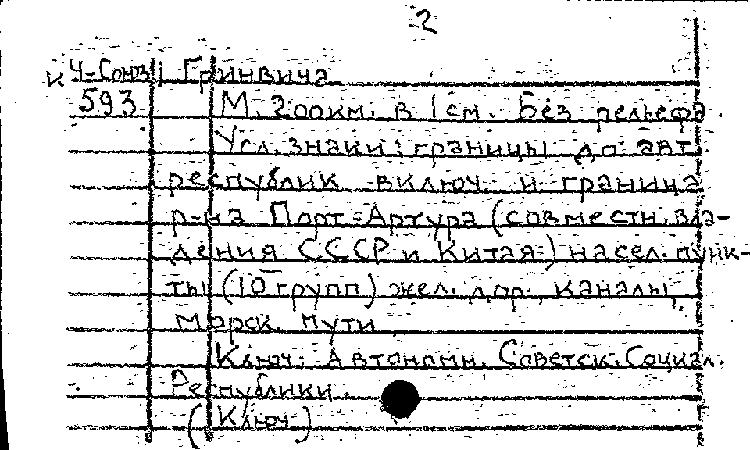 2
К Ч-Союз Гринвича
593 М. 200км. в 1см. Без рельефа.
Усл. знаки: границы до авт.
республик включ. и граница
р-на Порт-Артура (совместн. вла-
дения СССР и Китая) насел. пунк-
ты (10 групп) жел. дор., каналы,
морск. пути
Ключ: Автономн. Советск. Социал.
Республики.
(Ключ)